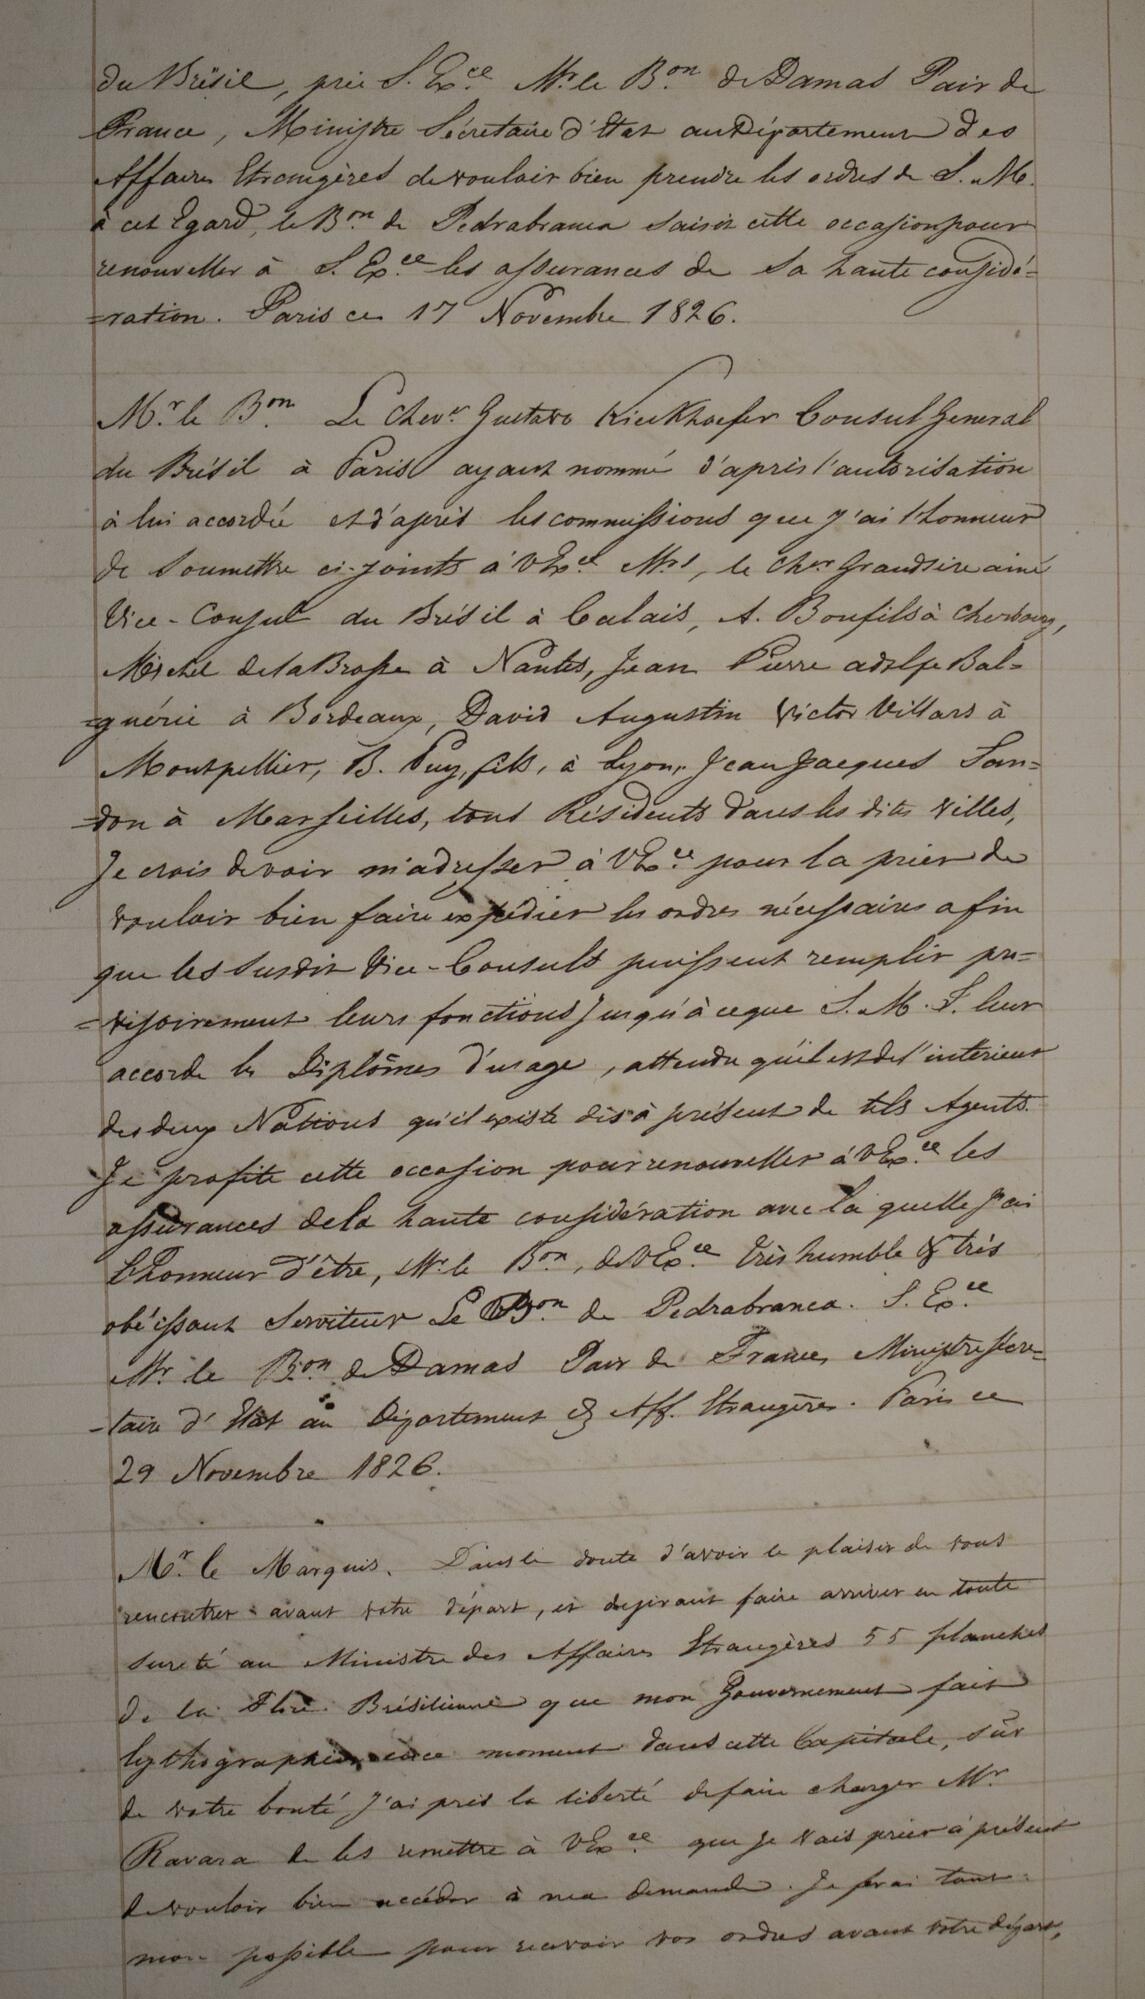 du Brésil, prie S. Ex.ce Mr. le B.on de Damas Pair de
France, Ministre Sécretaire d'Etat au Département des
Affaires Etrangères de vouloir bien prendre les ordres de S. M.
à cet Egard, le B.on de Pedrabranca saisit cette occasion pour
renouveller à S. Ex.ce les assurances de sa haute considé=
=ration. Paris ce 17 Novembre 1826.
M.r le B.on Le Chev.er Gustavo Kieckhoefer Consul General
du Brésil à Paris ayant nommé d'après l'autorisation
à lui accordée et d'après les commissions que j'ai l'honneur
de soumettre ci-joints à V Ex.ce Mrs, le Cher Grandsire ainé
Vice-Consul du Brésil à Calais, A. Bonfils à Cherbourg,
Michel de la Brosse à Nantes, Jean Pierre adolfe Bal=
=guérie à Bordeaux, David Augustin Victor Villars à
Montpellier, B. Puy, fils, à Lyon, Jean Jacques San=
=don à Marseilles, tous Résidents dans les dites villes,
Je crois devoir m'adresser à V Ex.ce pour la prier de
vouloir bien faire expédier les ordres nécessaires afin
que les susdit Vice-Consuls puissent remplir pro=
=visoirement leurs fonctions jusqu'à ceque S. M. I. leur
accorde les Diplômes d'usage, attendu qu'il est de l'intérieur
des deux Nations qu'il existe dès à présent de tels Agents.
Je profite cette occasion pour renouveller à V Ex.ce les
assurances de la haute considération avec la quelle j'ai
l'honneur d'être, Mr. le B.on, de V Ex.ce très humble & très
obéissant Serviteur Le B.on de Pedrabranca. S. Ex.ce
Mr. le B.on de Damas Pair de France, Ministre Secre=
=taire d'Etat au Département des Aff. Etrangères. Paris ce
29 Novembre 1826.
M.r le Marquis. Dans le doute d'avoir le plaisir de vous
rencontrer avant votre départ, et desirant faire arriver en toute
sureté au Ministre des Affaires Etrangères 55 planches
de la Flore Brésilienne que mon Gouvernement fait
lythographier en ce moment dans cette Capitale, sûr
de votre bonté j'ai pris la liberté de faire charger Mr
Ravara de les remettre à V Ex.ce que je vais prier à présent
de vouloir bien accéder à ma demande. Je ferai tout
mon possible pour recevoir vos ordres avant votre départ,